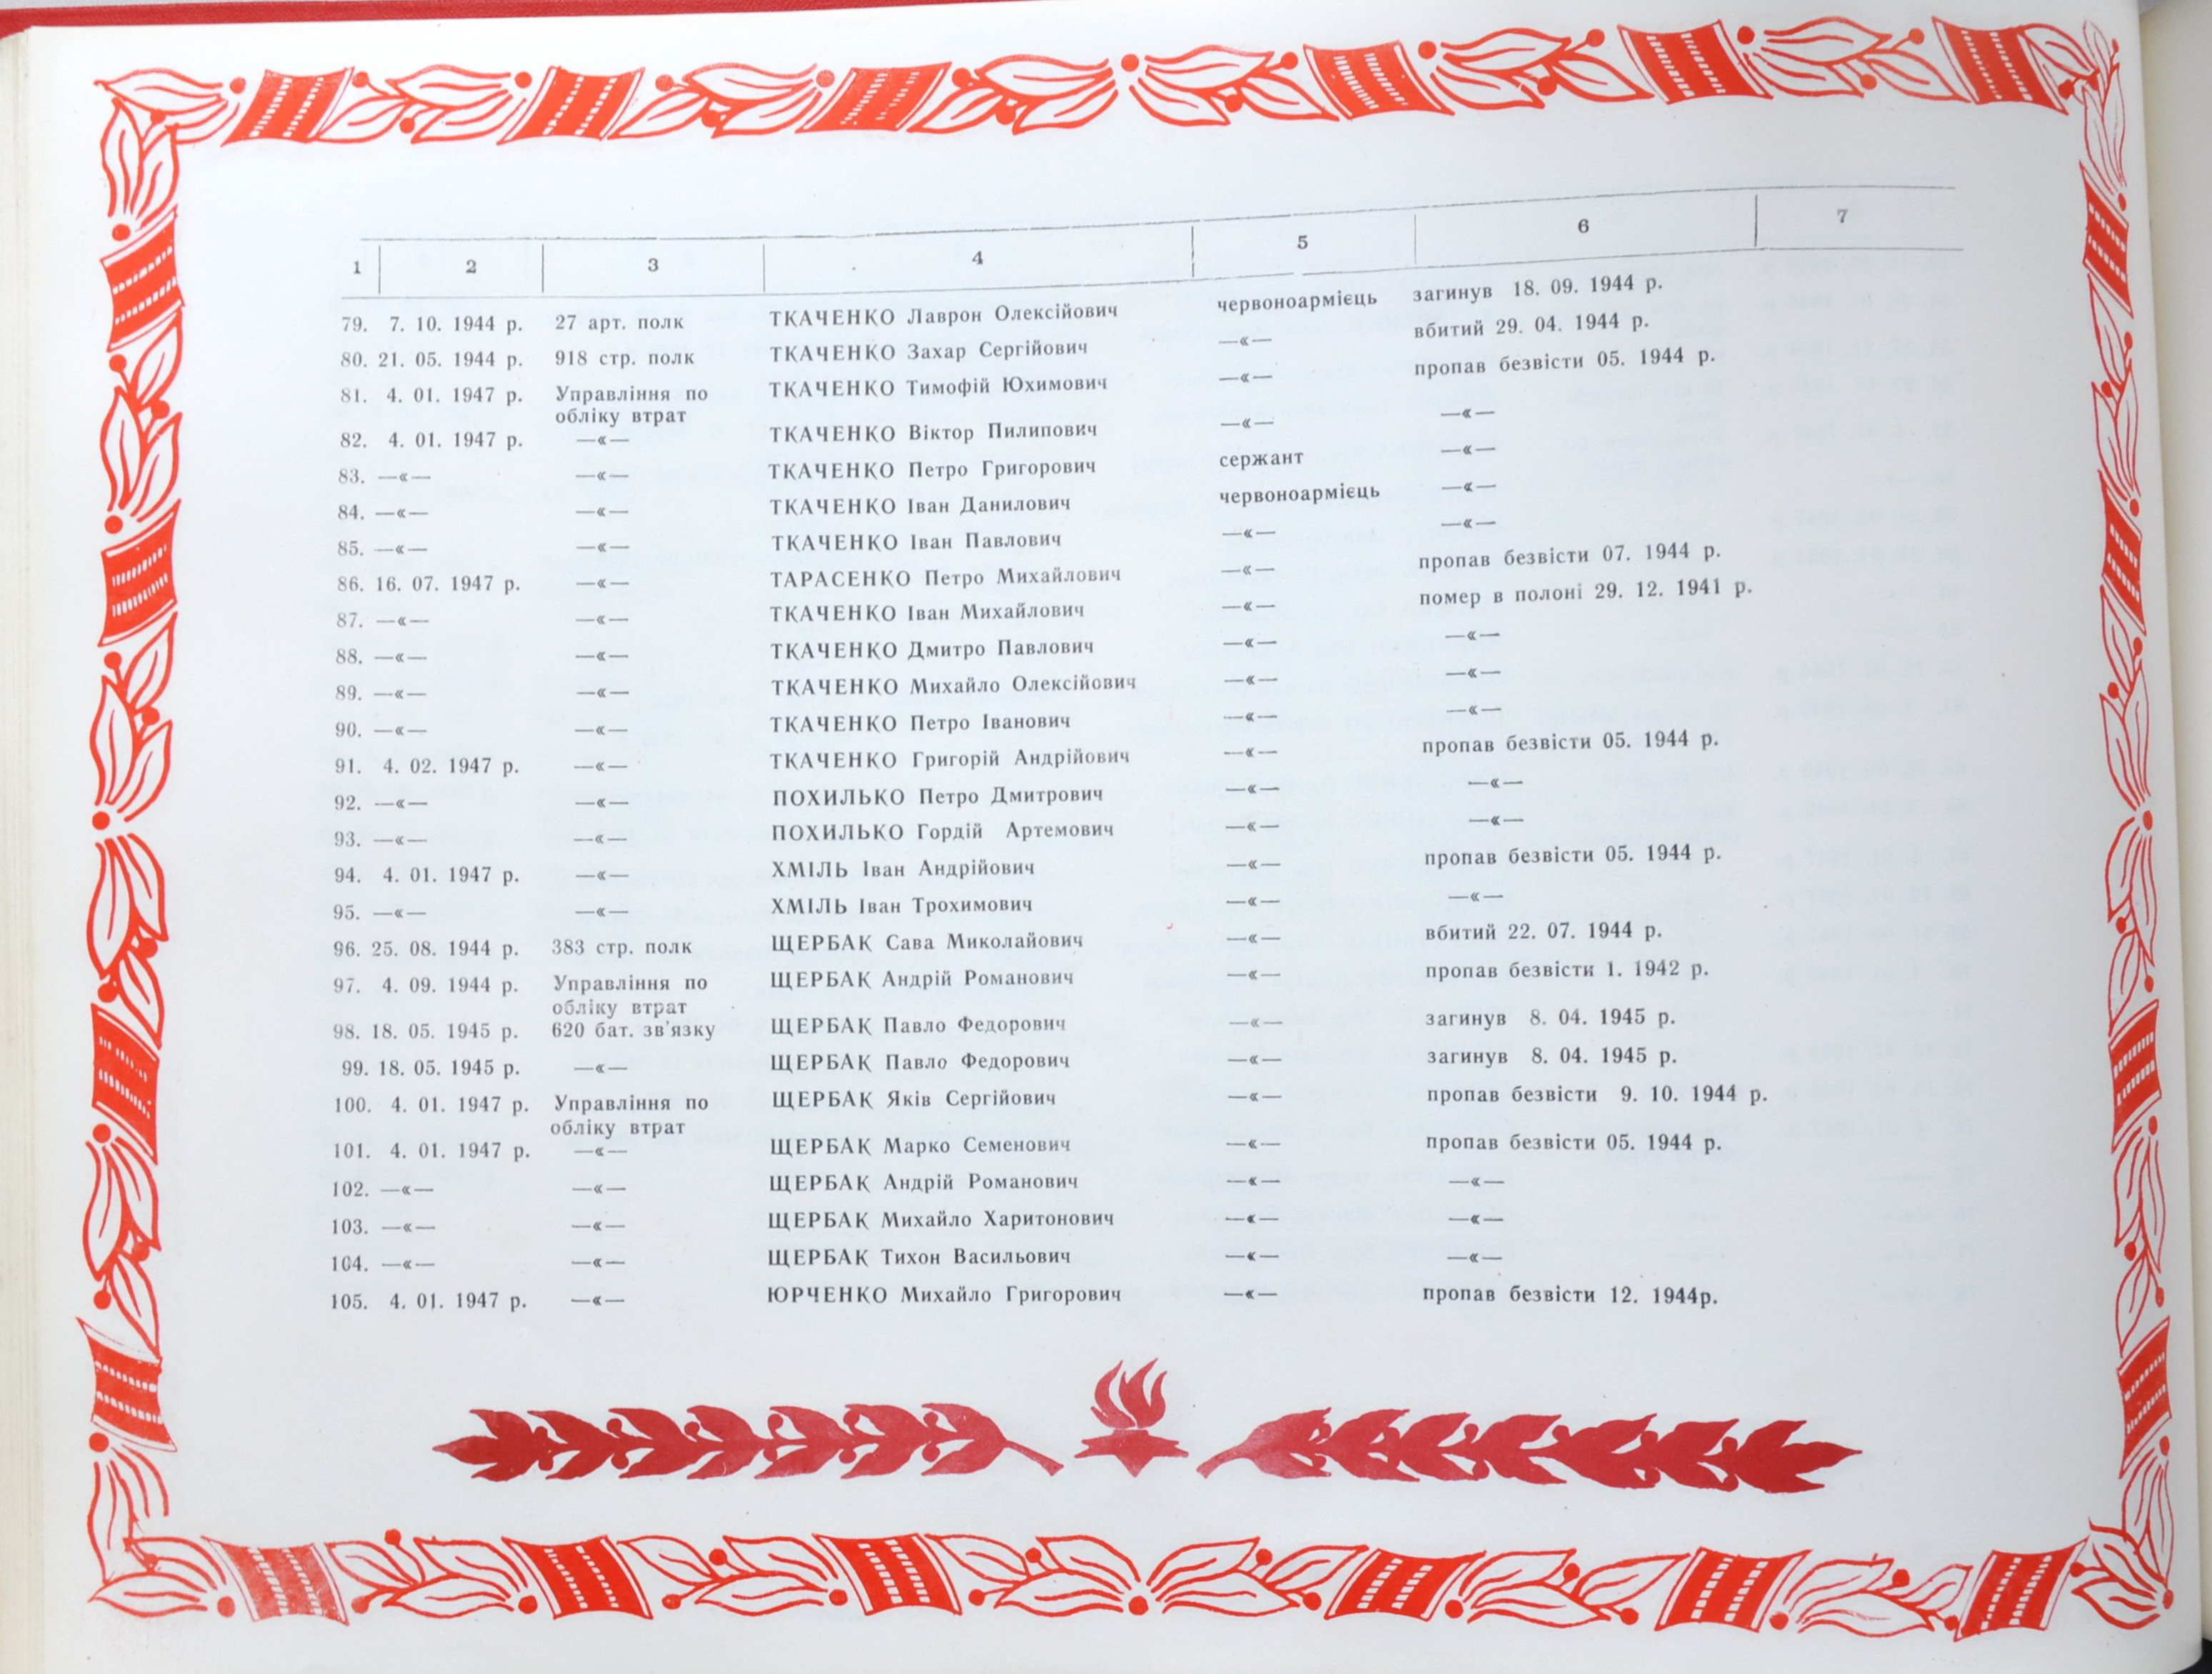 1 2 3 4 5 6 7
79. 7. 10. 1944 р. 27 арт. полк ТКАЧЕНКО Лаврон Олексійович червоноармієць загинув 18. 09. 1944 р.
80. 21. 05. 1944 р. 918 стр. полк ТКАЧЕНКО Захар Сергійович —«— вбитий 29. 04. 1944 р.
81. 4. 01. 1947 р. Управління по ТКАЧЕНКО Тимофій Юхимович —«— пропав безвісти 05. 1944 р.
обліку втрат
82. 4. 01. 1947 р. —«— ТКАЧЕНКО Віктор Пилипович —«— —«—
83. —«— —«— ТКАЧЕНКО Петро Григорович сержант —«—
84. —«— —«— ТКАЧЕНКО Іван Данилович червоноармієць —«—
85. —«— —«— ТКАЧЕНКО Іван Павлович —«— —«—
86. 16. 07. 1947 р. —«— ТАРАСЕНКО Петро Михайлович —«— пропав безвісти 07. 1944 р.
87. —«— —«— ТКАЧЕНКО Іван Михайлович —«— помер в полоні 29. 12. 1941 р.
88. —«— —«— ТКАЧЕНКО Дмитро Павлович —«— —«—
89. —«— —«— ТКАЧЕНКО Михайло Олексійович —«— —«—
90. —«— —«— ТКАЧЕНКО Петро Іванович —«— —«—
91. 4. 02. 1947 р. —«— ТКАЧЕНКО Григорій Андрійович —«— пропав безвісти 05. 1944 р.
92. —«— —«— ПОХИЛЬКО Петро Дмитрович —«— —«—
93. —«— —«— ПОХИЛЬКО Гордій Артемович —«— —«—
94. 4. 01. 1947 р. —«— ХМІЛЬ Іван Андрійович —«— пропав безвісти 05. 1944 р.
95. —«— —«— ХМІЛЬ Іван Трохимович —«— —«—
96. 25. 08. 1944 р. 383 стр. полк ЩЕРБАК Сава Миколайович —«— вбитий 22. 07. 1944 р.
97. 4. 09. 1944 р. Управління по ЩЕРБАК Андрій Романович —«— пропав безвісти 1. 1942 р.
обліку втрат
98. 18. 05. 1945 р. 620 бат. зв'язку ЩЕРБАК Павло Федорович —«— загинув 8. 04. 1945 р.
99. 18. 05. 1945 р. —«— ЩЕРБАК Павло Федорович —«— загинув 8. 04. 1945 р.
100. 4. 01. 1947 р. Управління по ЩЕРБАК Яків Сергійович —«— пропав безвісти 9. 10. 1944 р.
обліку втрат
101. 4. 01. 1947 р. —«— ЩЕРБАК Марко Семенович —«— пропав безвісти 05. 1944 р.
102. —«— —«— ЩЕРБАК Андрій Романович —«— —«—
103. —«— —«— ЩЕРБАК Михайло Харитонович —«— —«—
104. —«— —«— ЩЕРБАК Тихон Васильович —«— —«—
105. 4. 01. 1947 р. —«— ЮРЧЕНКО Михайло Григорович —«— пропав безвісти 12. 1944р.